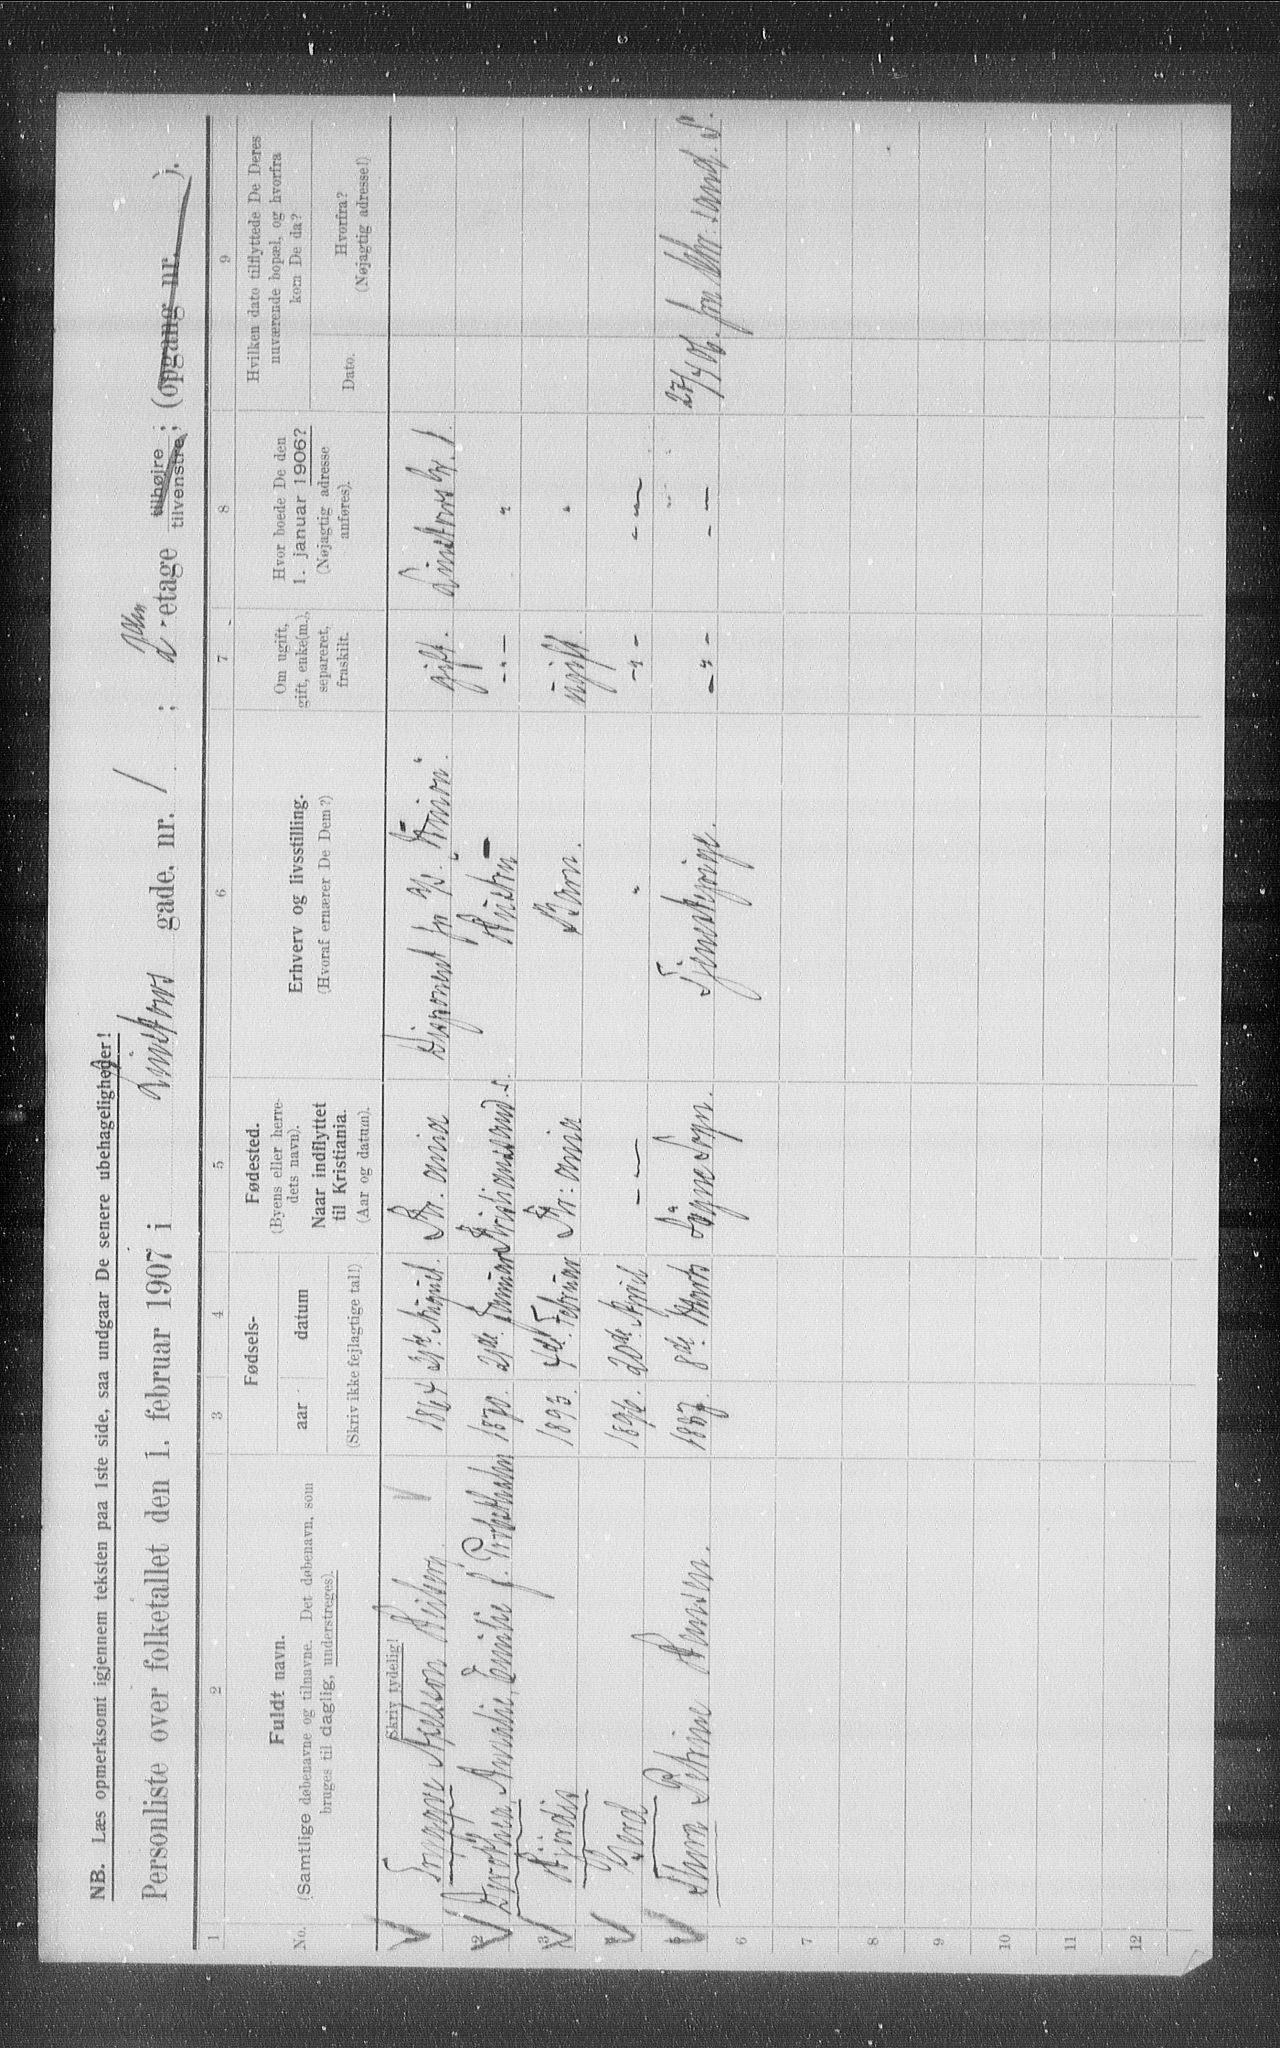 NB. Læs opmerksomt igjennem teksten paa 1ste side, saa undgaar De senere ubehageligheder!
Personliste over folketallet den 1. februar 1907 i Linstows gade, nr. 1 ; 2den etage tilhøjre tilvenstre; (opgang nr. ).
1 2 3 4 5 6 7 8 9
No.
Fuldt navn.
(Samtlige døbenavne og tilnavne. Det døbenavn, som
bruges til daglig, understreges).
Fødsels-
aar datum
(Skriv ikke fejlagtige tal!)
Fødested.
(Byens eller herre-
dets navn).
Naar indflyttet
til Kristiania.
(Aar og datum).
Erhverv og livsstilling.
(Hvoraf ernærer De Dem?)
Om ugift,
gift, enke(m.),
separeret,
fraskilt.
Hvor boede De den
1. januar 1906?
(Nøjagtig adresse
anføres).
Hvilken dato tilflyttede De Deres
nuværende bopæl, og hvorfra
kom De da?
Dato.
Hvorfra?
(Nøjagtig adresse!)
Skriv tydelig!
Trygve Axelson Heiberg. 1864 31te August. Kr. ania Disponent for A/S. Union. gift. Linstows G. 1.
2 Dorothea, Amalie, Emilie f. 1870. 21de Januar Kristianssand. S. Hustru — - " - "
3 Hjørdis 1893. 4de Februar Kr: ania Barn. ugift. "
Gerd 1896. 20de April — — " - " - - " -
Thora Petrine Hansen. 1887. 8de Marts Søgne Sogn. Tjenestepige. - " - - - 27/4 06. fra Chr: sand. S.
6
7
8
9
10
11
12